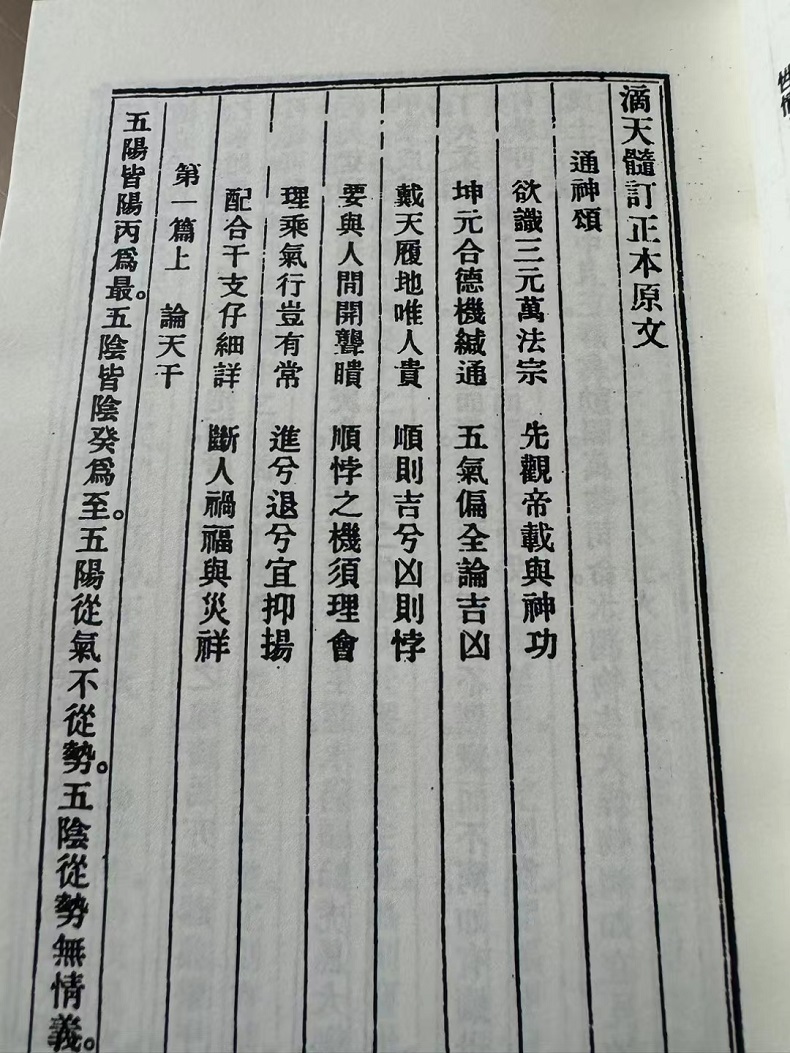 滴天髓訂正本原文
通神頌
欲識三元萬法宗　先觀帝載與神功
坤元合德機緘通　五氣偏全論吉凶
戴天履地唯人貴　順則吉兮凶則悖
要與人間開聾瞶　順悖之機須理會
理乘氣行豈有常　進兮退兮宜抑揚
配合干支仔細詳　斷人禍福與災祥
第一篇上　論天干
五陽皆陽丙爲最。五陰皆陰癸爲至。五陽從氣不從勢。五陰從勢無情義。